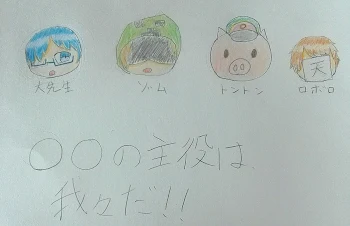 天
大先生 ゾム トントン ロボロ
〇〇の主役は
我々だ!!